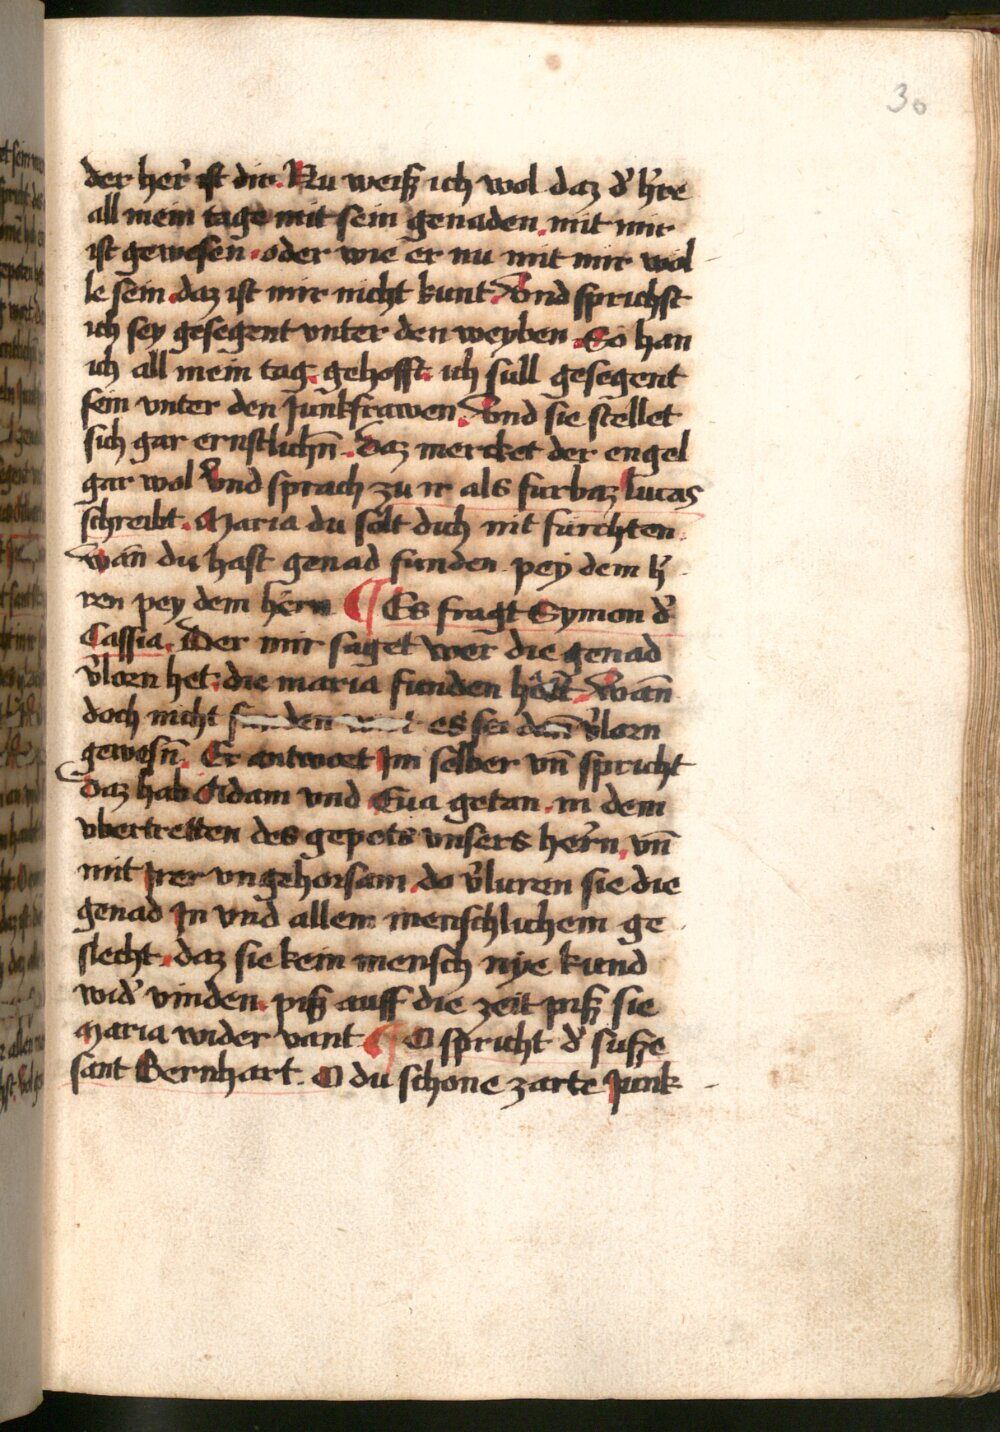 30
der her̄ ist dir. Nu weiß ich wol daz d̾ h̾re
all mein tage mit sein genaden. mit mir
ist gewesen. oder wie er nu mit mir wol
le sein. daz ist mir nicht kunt. Vnd sprichst
ich sey gesegent vnter den weyben. So han
ich all mein tag. gehofft. ich sull gesegent
sein vnter den Junkfrawen. Vnd sie stellet
sich gar ernstlichn̄. Daz mercket der engel
gar wol Vnd sprach zu ir als furbaz lucas
schreibt. Maria du solt dich nit furchten.
wān du hast genad funden pey dem h̾
ren pey dem hern ¶ Es fragt Symon d̾
Cassia. Der mir saget wer die genad
v̾lorn het. die maria funden hott. Wān
doch nicht funden es sei dān v̾lorn
gewesn̄. Er antwort Im selber vn̄ spricht
Daz hab Adam vnd Eua getan. in dem
vbertretten des gepots vnsers hern̄. vn̄
mit Irer vngehorsam. do v̾luren sie die
genad In vnd allem menschlichem ge
slecht. daz sie kein mensch nye kund
wid̾ vinden. piß auff die zeit piß sie
Maria wider vant. ¶ O spricht d̾ suße
sant Bernhart. O du schone zarte Junk